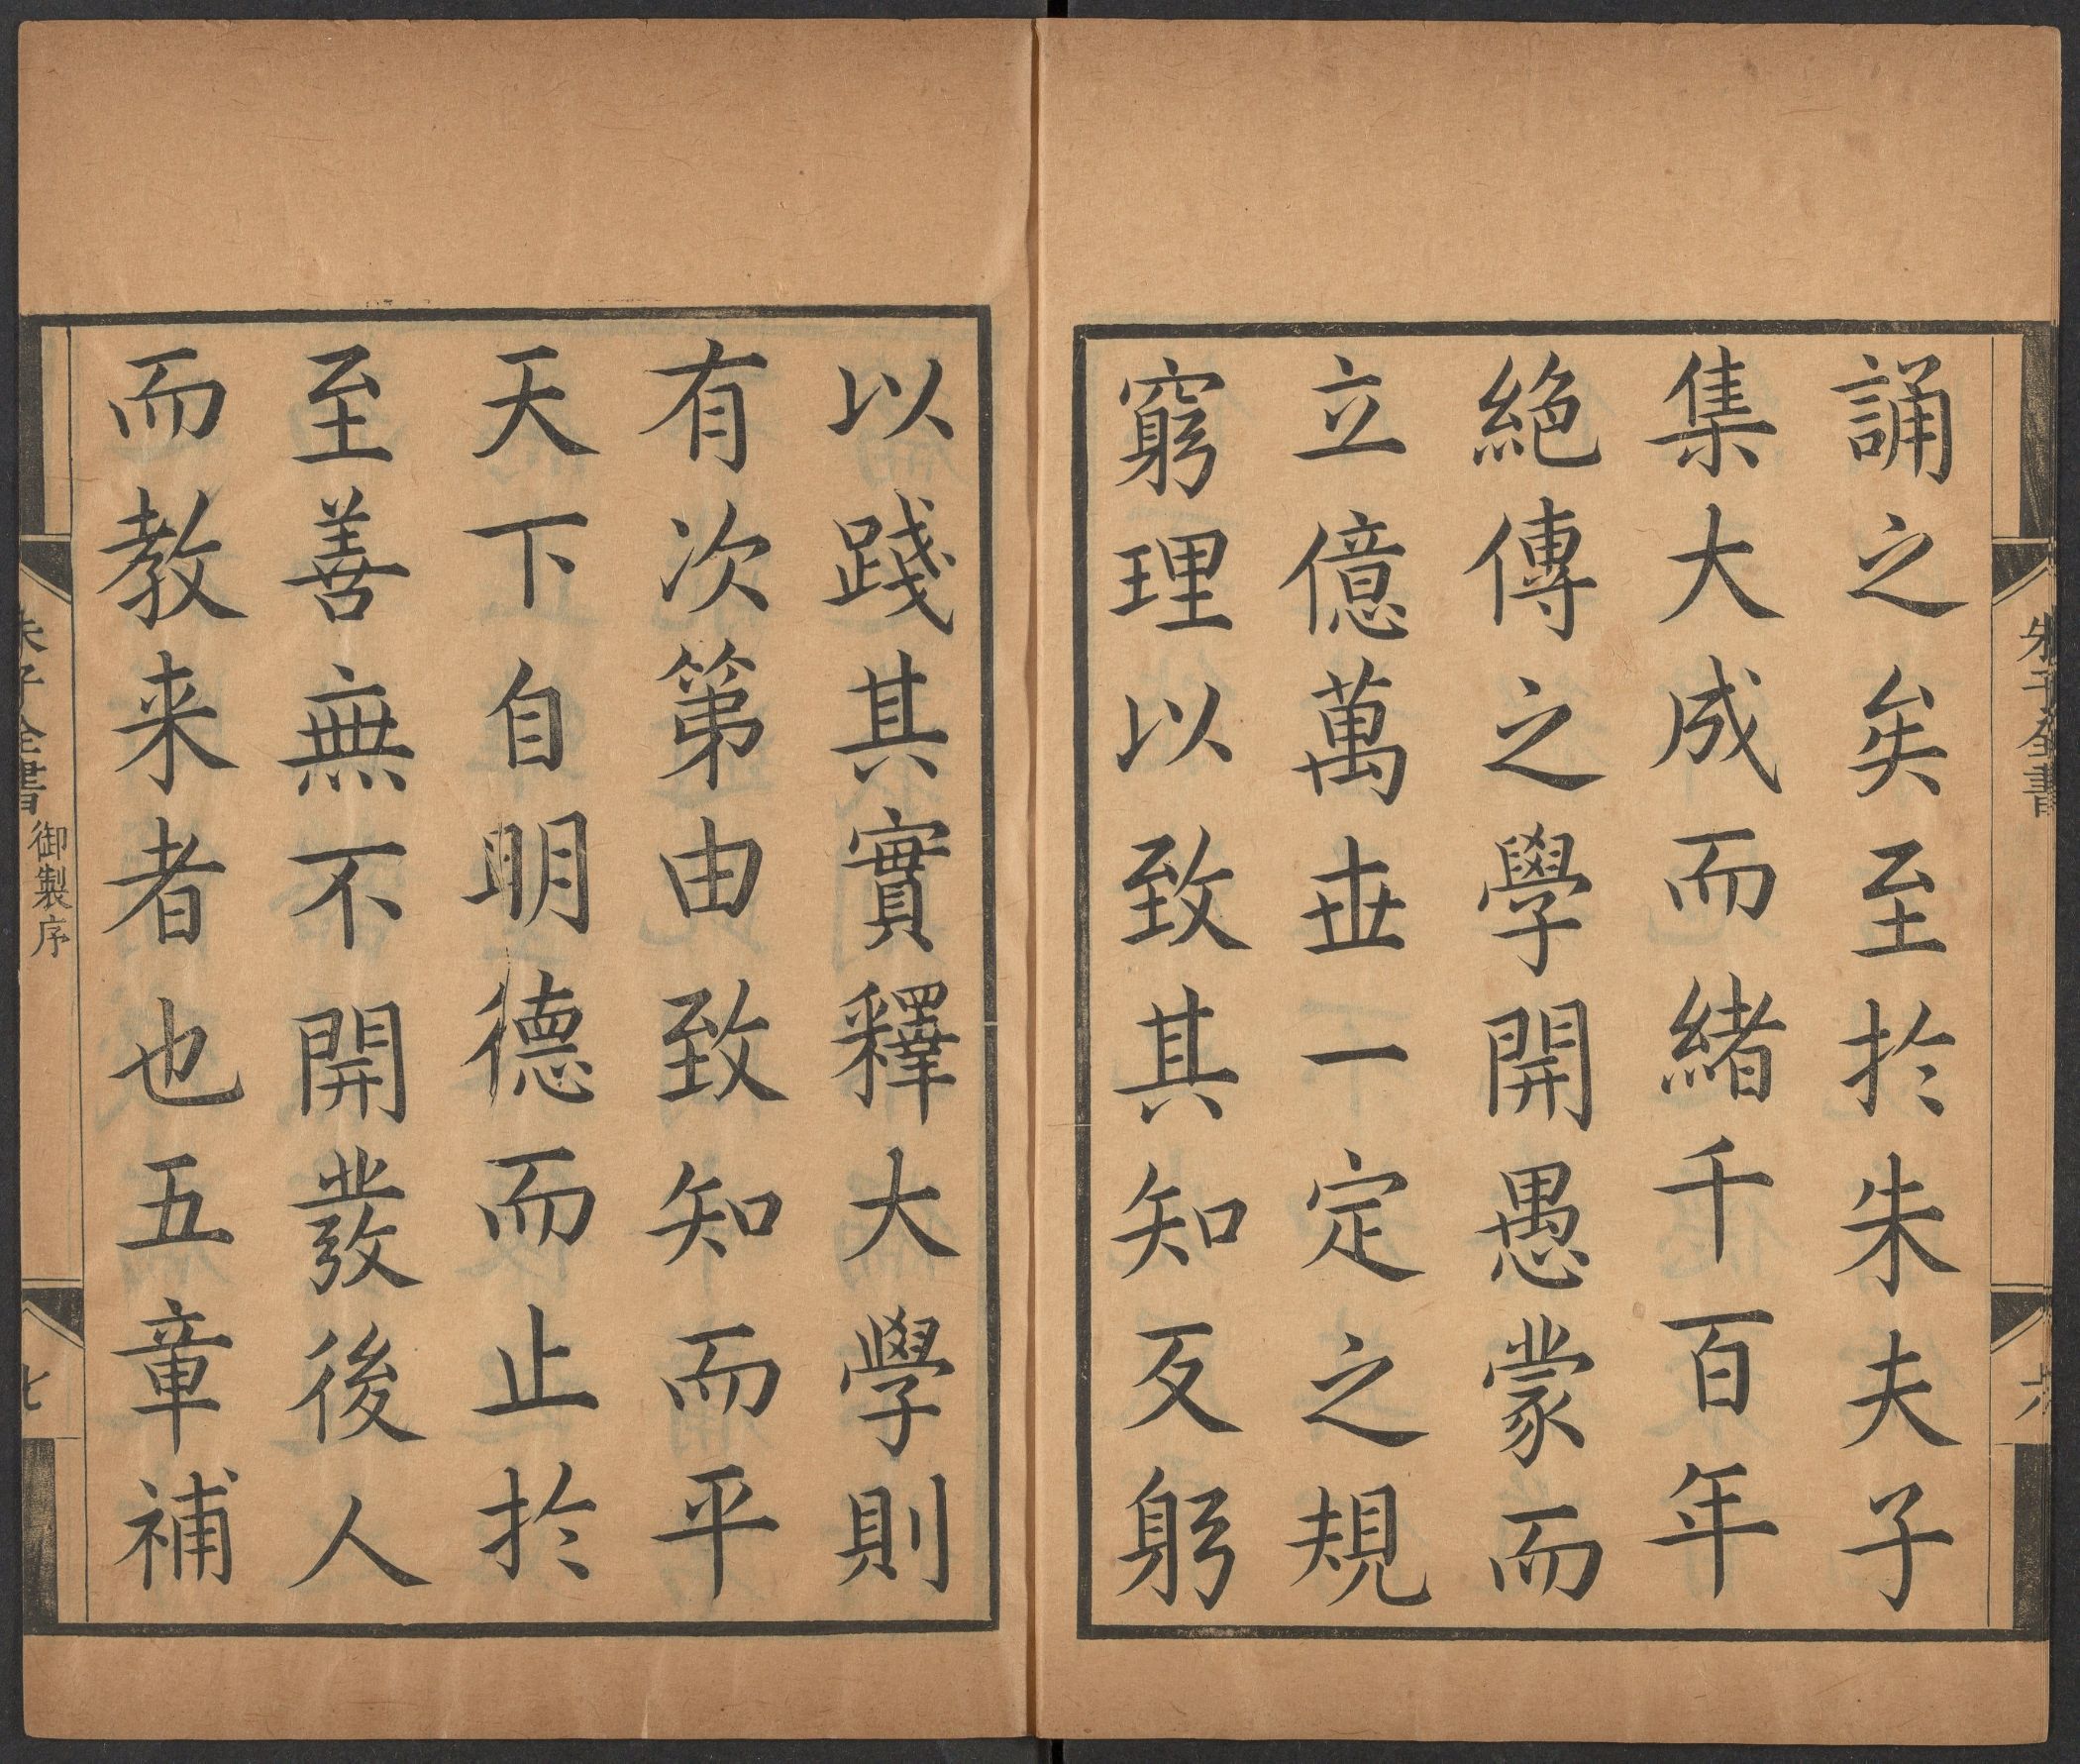 朱子全書
六
誦之矣至於朱夫子
集大成而緒千百年
絕傳之學開愚蒙而
立億萬世一定之規
窮理以致其知反躬
以踐其實釋大學則
有次第由致知而平
天下自明德而止於
至善無不開發後人
而教来者也五章補
朱子全書
御製序
七